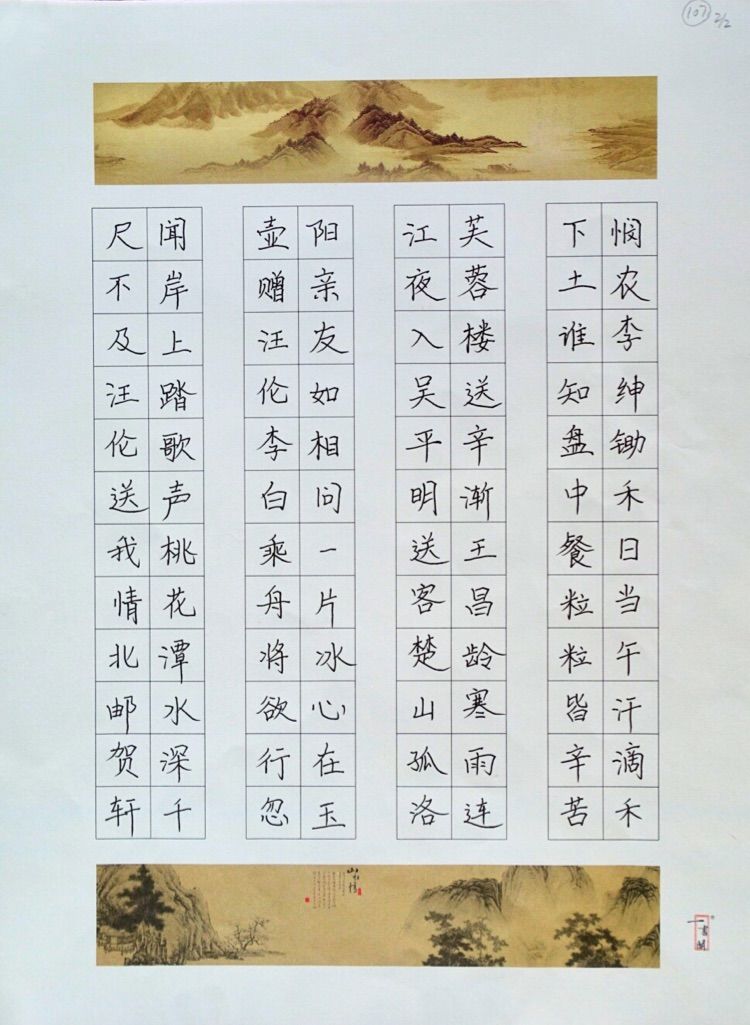 107 2/2
悯农李绅锄禾日当午汗滴禾
下土谁知盘中餐粒粒皆辛苦
芙蓉楼送辛渐王昌龄寒雨连
江夜入吴平明送客楚山孤洛
阳亲友如相问一片冰心在玉
壶赠汪伦李白乘舟将欲行忽
闻岸上踏歌声桃花潭水深千
尺不及汪伦送我情北邮贺轩